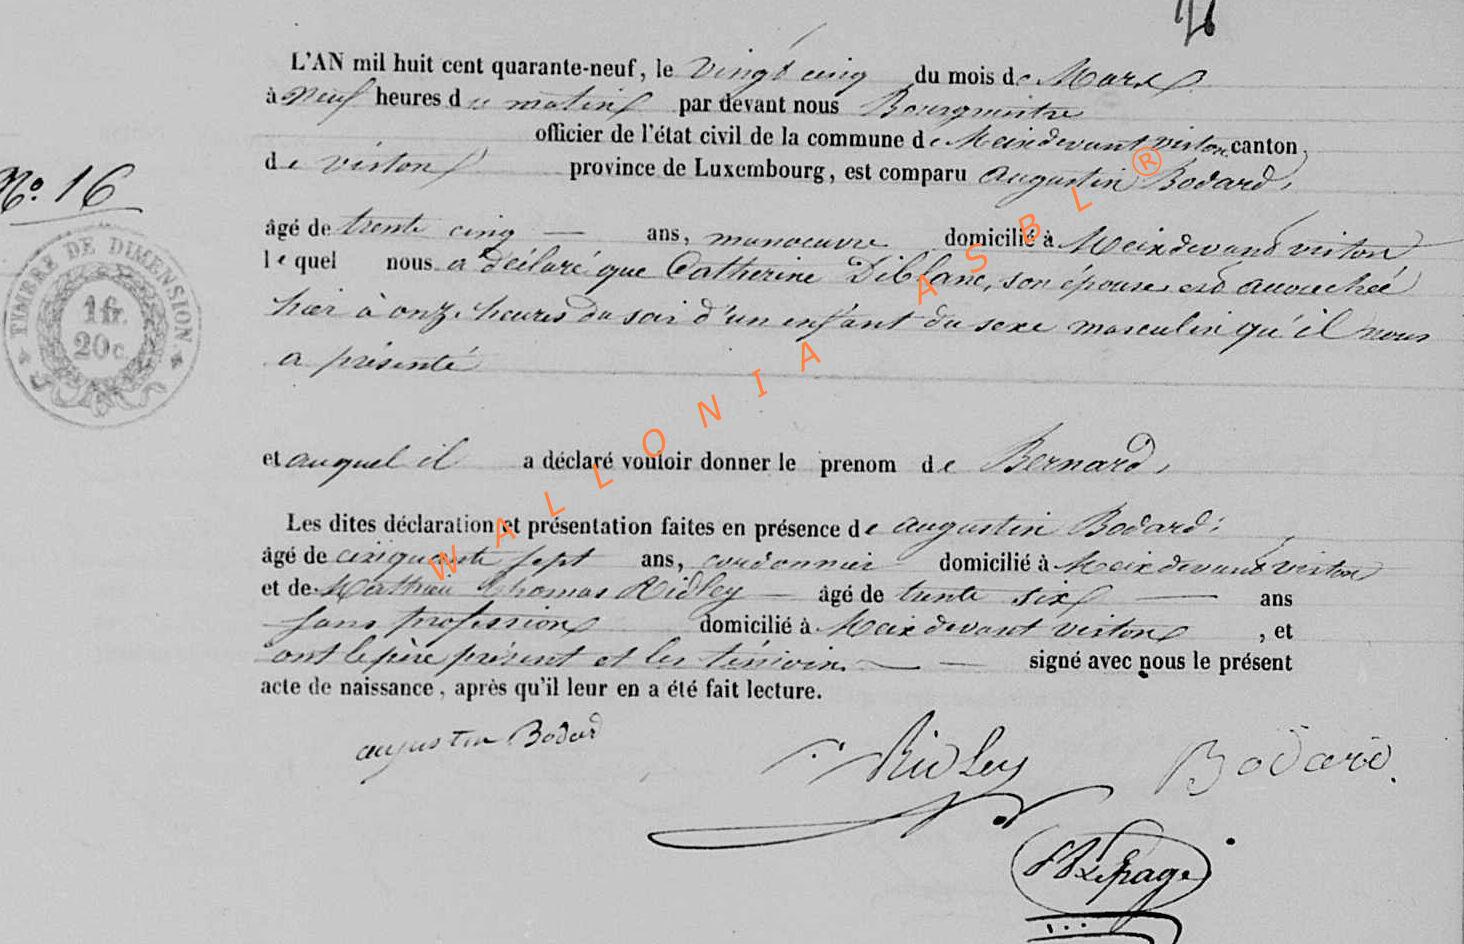 L'AN mil huit cent quarante-neuf, le vingt cinq du mois de Mars
à neuf heures du matin par devant nous Bourgmestre
officier de l'état civil de la commune de Meixdevant virton canton
de virton province de Luxembourg, est comparu Augustin Bodard,
No. 16
âgé de trente cinq — ans, manoeuvre domicilié à Meixdevant virton
lequel nous a déclaré que Catherine Diblanc, son épouse est accouchée
hier à onze heures du soir d'un enfant du sexe masculin qu'il nous
a présenté
TIMBRE DE DIMENSION
1 fr.
20 c.
et auquel il a déclaré vouloir donner le prenom de Bernard,
Les dites déclaration et présentation faites en présence de augustin Bodard
âgé de cinquante sept ans, cordonnier domicilié à Meixdevant virton
et de Mathieu Thomas Ridley — âgé de trente six — ans
sans profession domicilié à Meix devant virton , et
ont le père présent et les témoins — — signé avec nous le présent
acte de naissance, après qu'il leur en a été fait lecture.
augustin Bodard
Ridley Bodard.
Lepage
WALLONIA ASBL ®